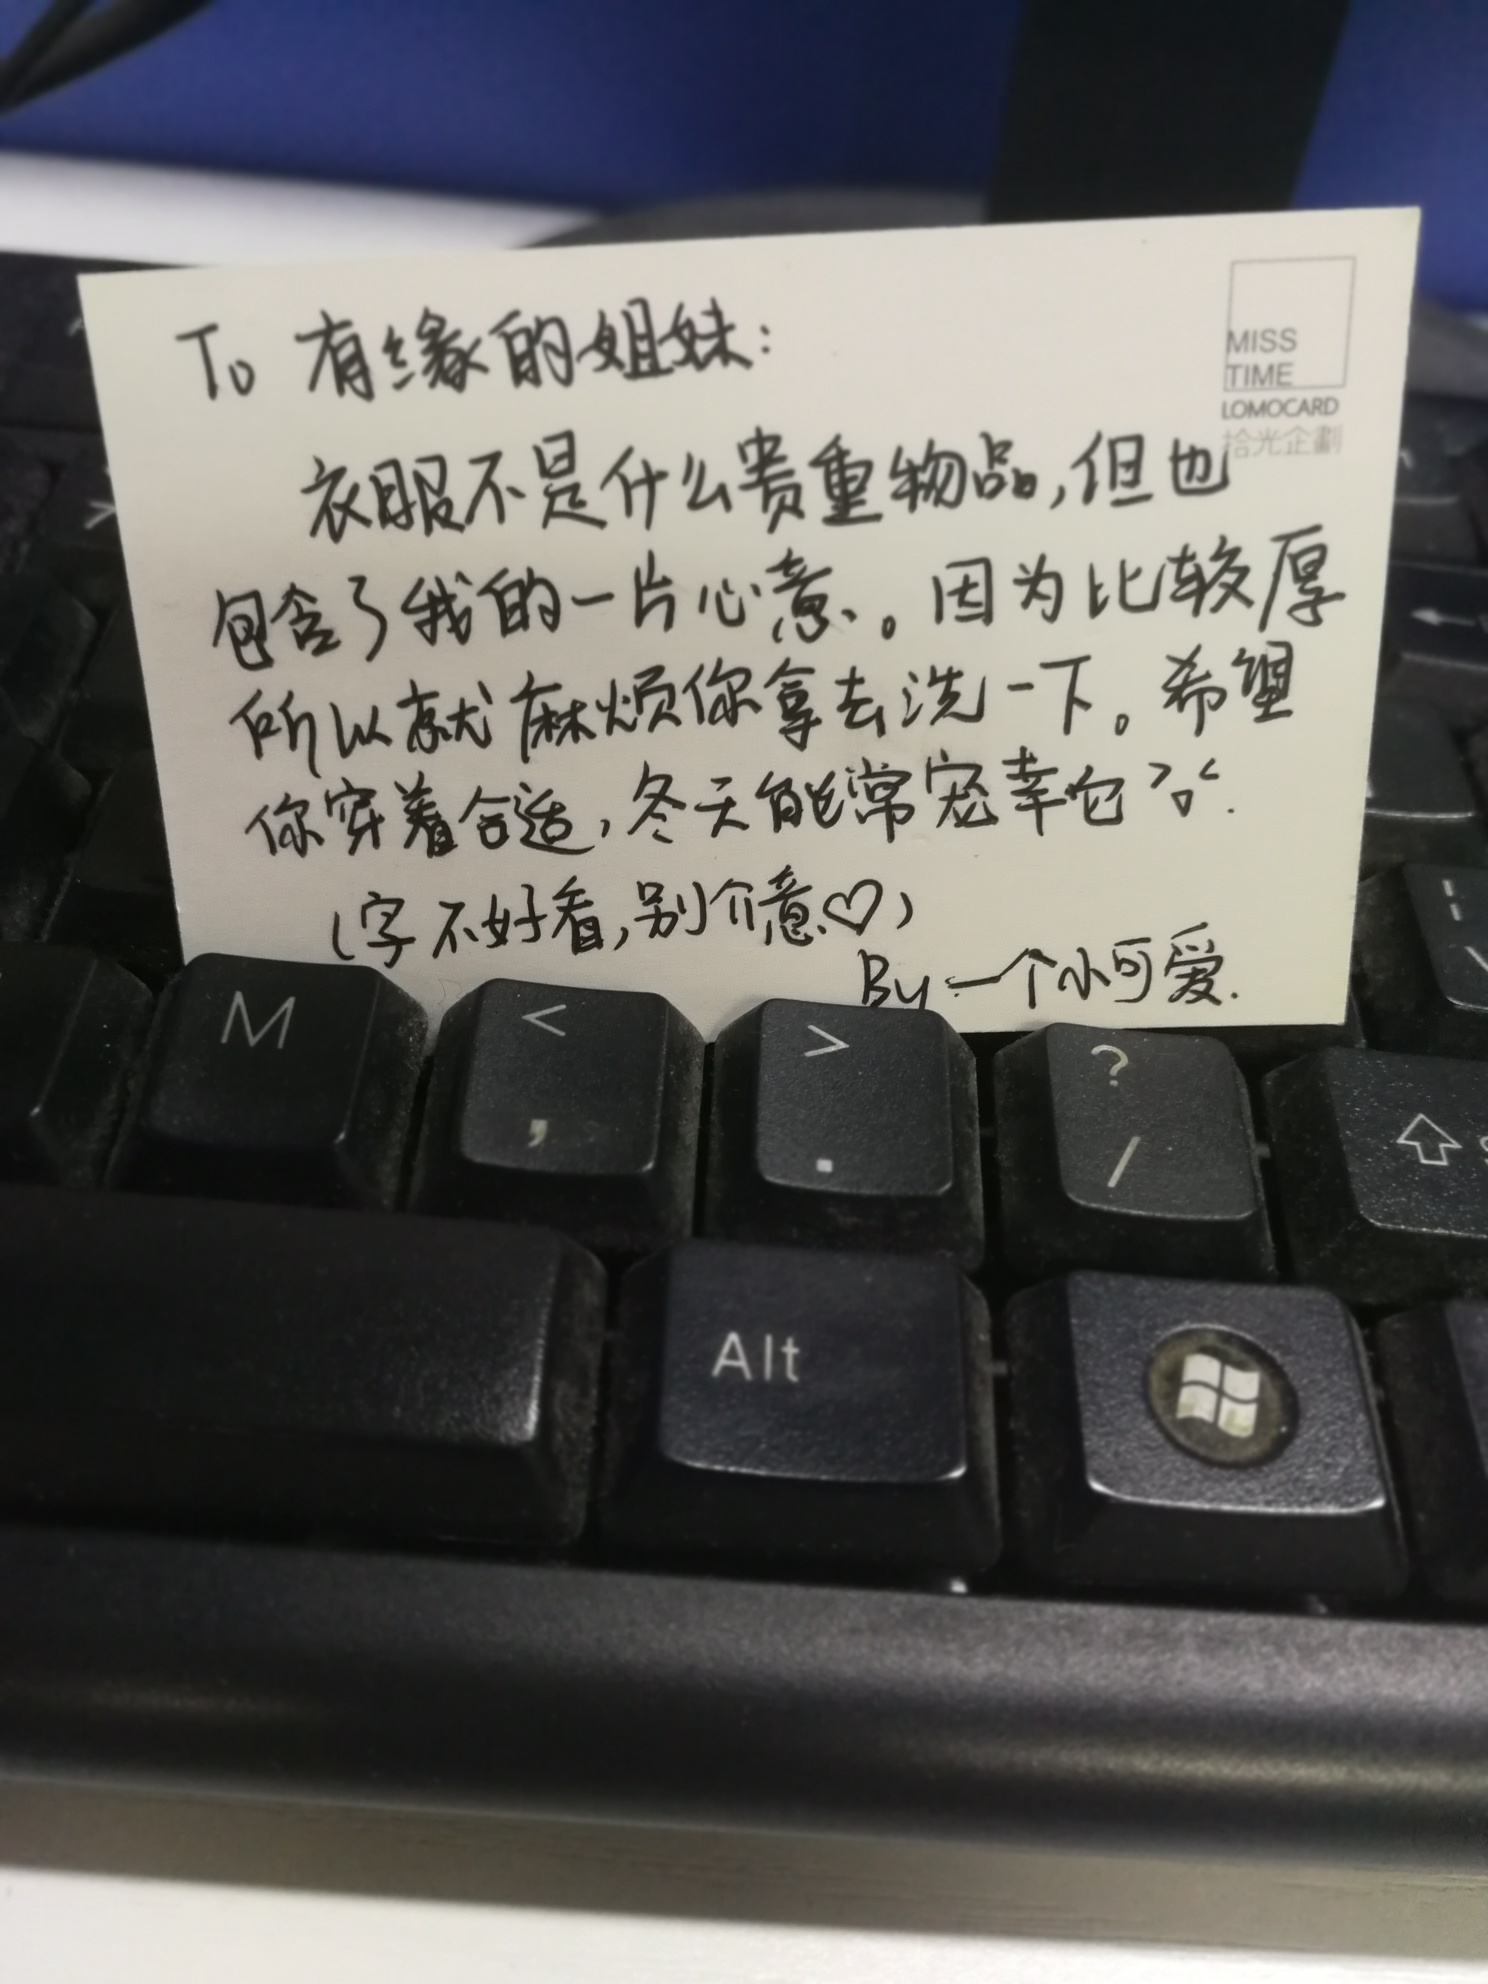 To 有缘的姐妹：
MISS
TIME
LOMOCARD
拾光企劃
衣服不是什么贵重物品，但也
包含了我的一片心意。因为比较厚
所以就麻烦你拿去洗一下。希望
你穿着合适，冬天能常宠幸它
（字不好看，别介意♡）
By 一个小可爱.
M
<
,
>
.
?
/
Alt